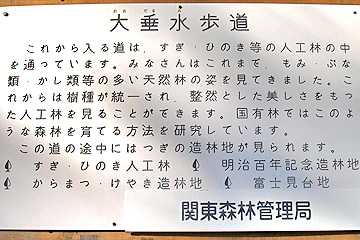 おお だる
大垂水歩道
これから入る道は、すぎ・ひのき等の人工林の中
を通っています。みなさんはこれまで、もみ・ぶな
類・かし類等の多い天然林の姿を見てきました。こ
れからは樹種が統一され、整然とした美しさをもっ
た人工林を見ることができます。国有林ではこのよ
うな森林を育てる方法を研究しています。
この道の途中にはつぎの造林地が見られます。
すぎ・ひのき人工林 明治百年記念造林地
からまつ・けやき造林地 富士見台地
関東森林管理局